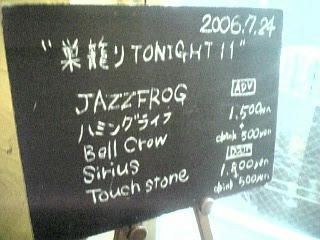 2006.7.24
"巣籠りTONIGHT 11"
JAZZFROG
ハミングライフ
Ball Crow
Sirius
Touch stone
ADV
1,500yen
+
drink 500yen
DOOR
1,800yen
+
drink 500yen